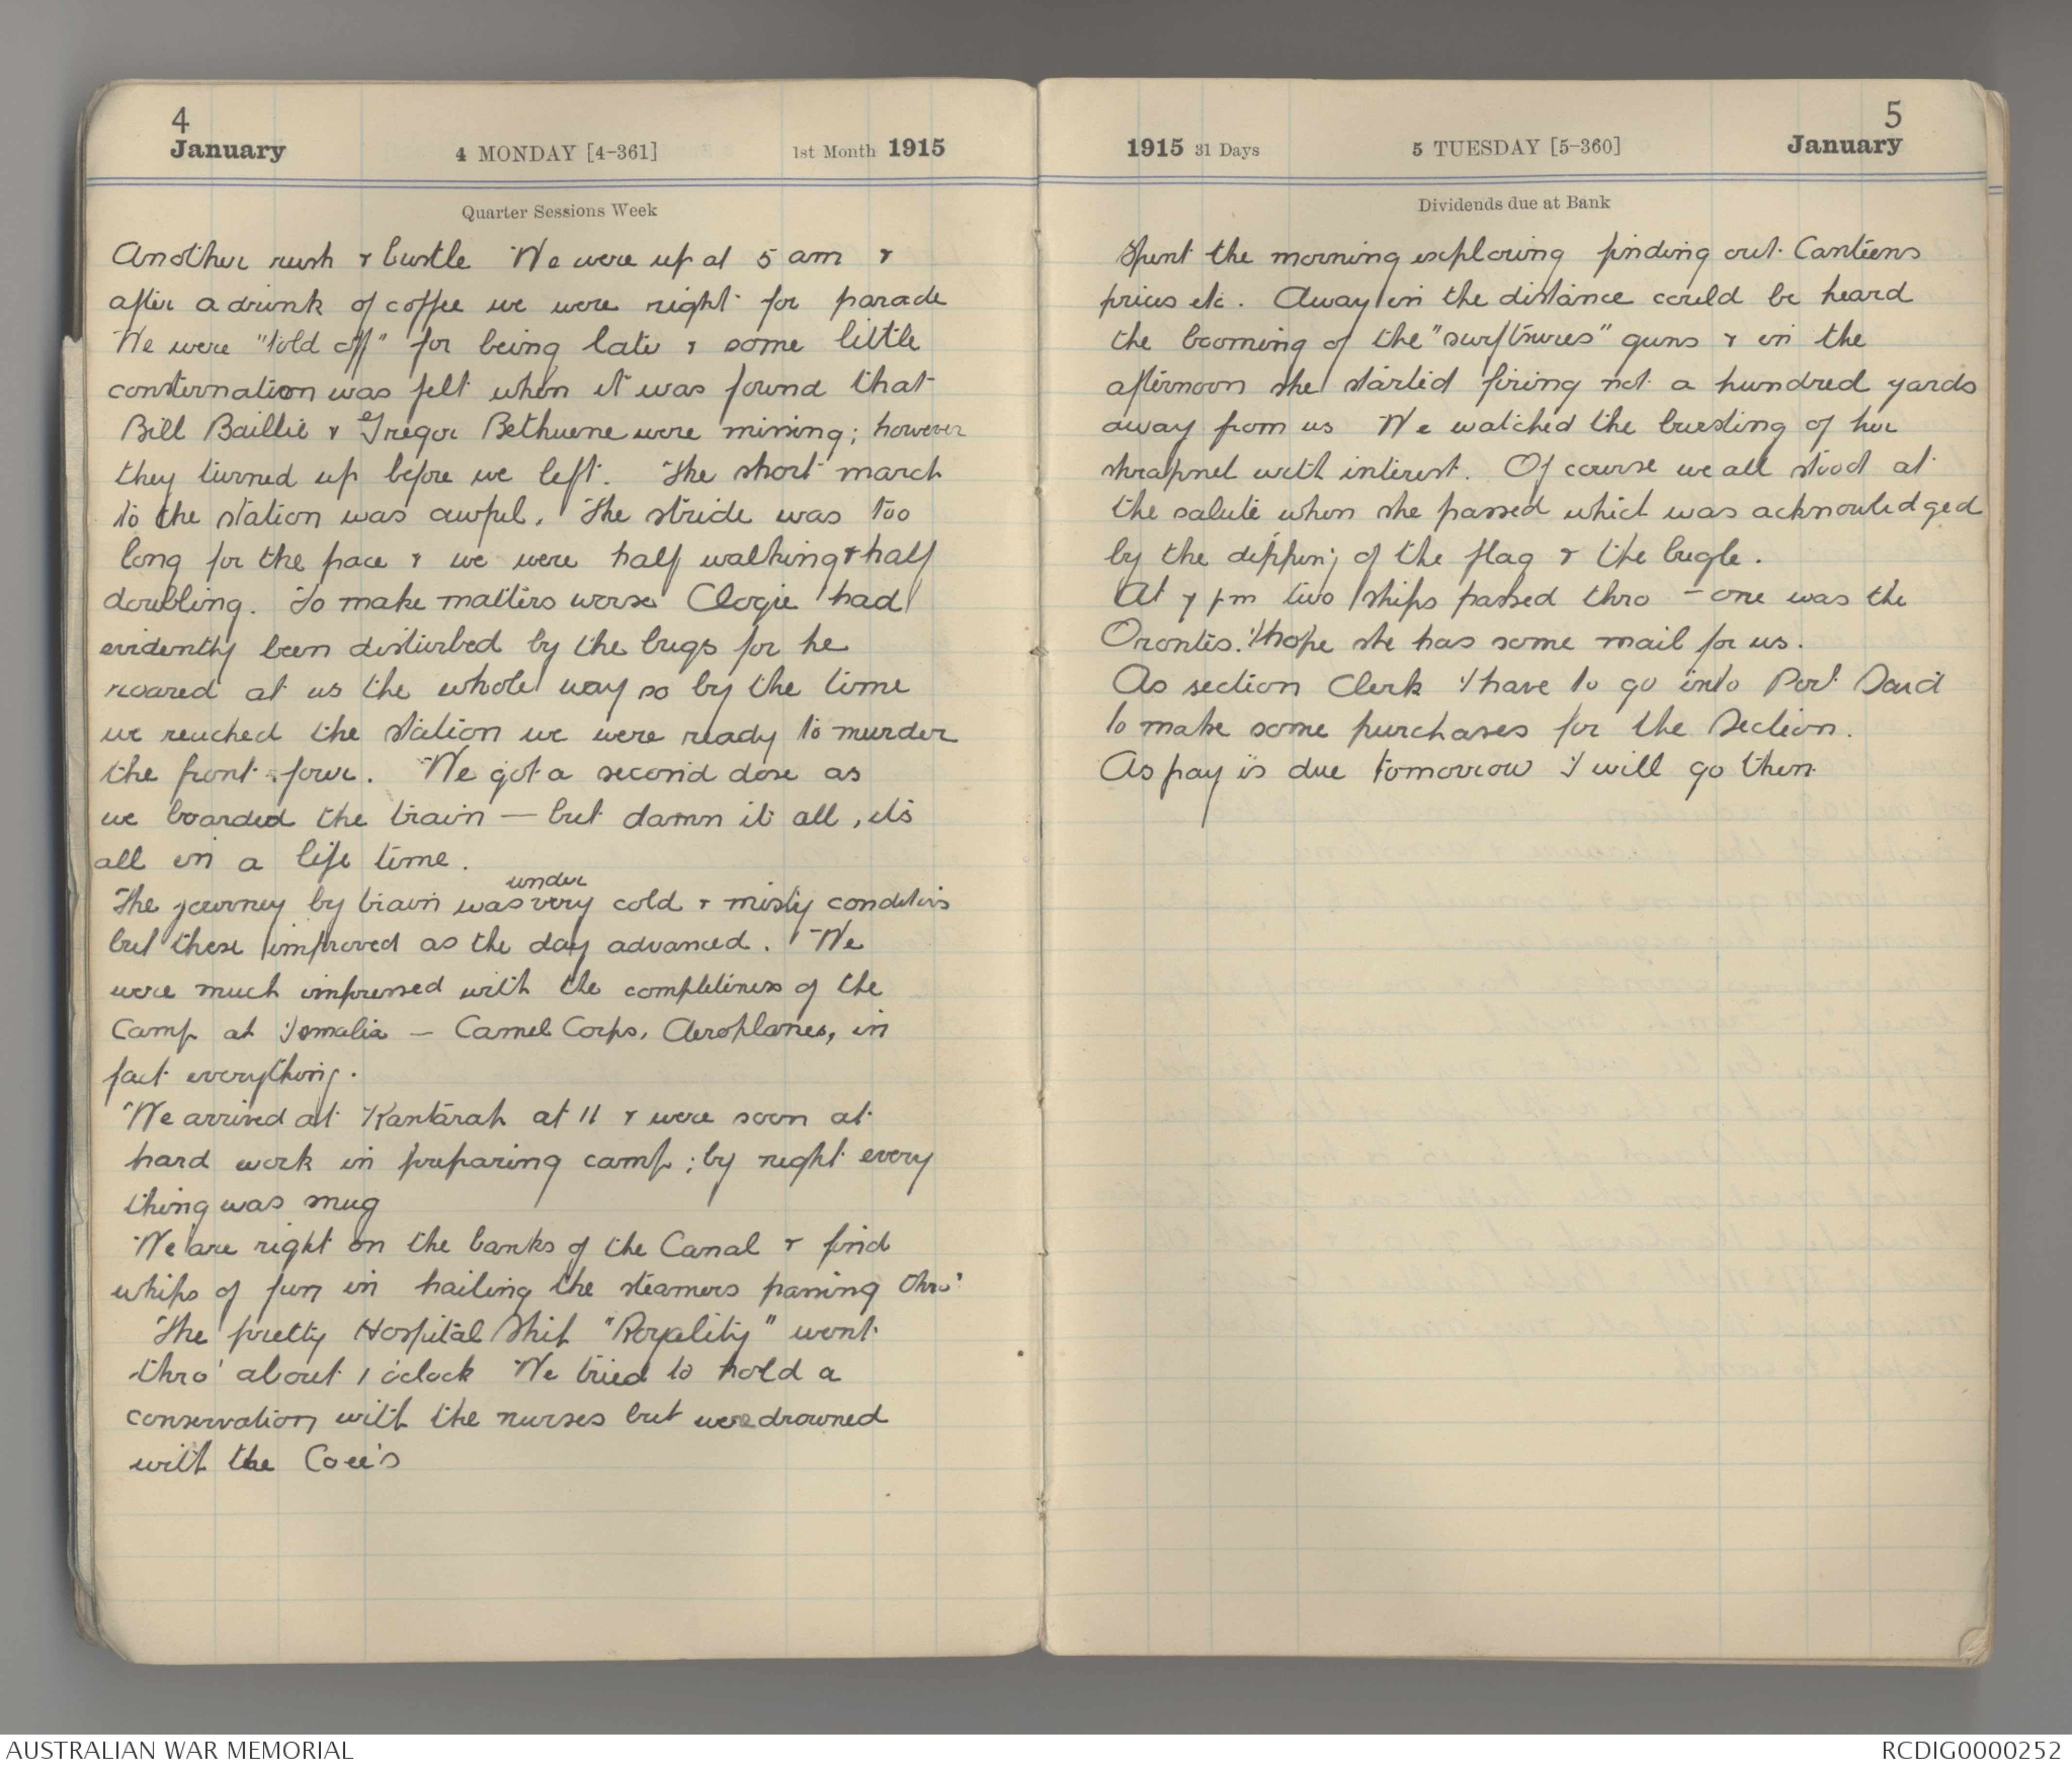 4
January
4 MONDAY [4-361]
1st Month 1915
Quarter Sessions Week
Another rush & bustle We were up at 5 am &
after a drink of coffee we were right for parade
We were "told off" for being late & some little
consternation was felt when it was found that
Bill Baillie & Gregor Bethuene were missing; however
they turned up before we left. The short march
to the station was awful. The stride was too
long for the pace & we were half walking & half
doubling. To make matters worse Clogie had
evidently been disturbed by the bugs for he
roared at us the whole way so by the time
we reached the station we were ready to murder
the front four. We got a second dose as
we boarded the train — but damn it all, its
all in a life time.
The journey by train was under very cold & misty conditions
but these improved as the day advanced. We
were much impressed with the completiness of the
Camp at Ismalia — Camel Corps, Aeroplanes, in
fact everything.
We arrived at Kantarah at 11 & were soon at
hard work in preparing camp; by night every
thing was snug
We are right on the banks of the Canal & find
whips of fun in hailing the steamers passing thro'
The pretty Hospital Ship "Royality" went
thro' about 1 o'clock We tried to hold a
conservation with the nurses but were drowned
with the Coee's
5
1915 31 Days
5 TUESDAY [5-360]
January
Dividends due at Bank
Spent the morning exploring finding out Canteens
prices etc. Away in the distance could be heard
the booming of the "surftsures" guns & in the
afternoon she started firing not a hundred yards
away from us We watched the bursting of her
shrapnel with interest. Of course we all stood at
the salute when she passed which was acknowledged
by the dipping of the flag & the bugle.
At 7 pm two ships passed thro — one was the
Orontes. I hope she has some mail for us.
As section Clerk I have to go into Port Said
to make some purchases for the Section.
As pay is due tomorrow I will go then
AUSTRALIAN WAR MEMORIAL
RCDIG0000252